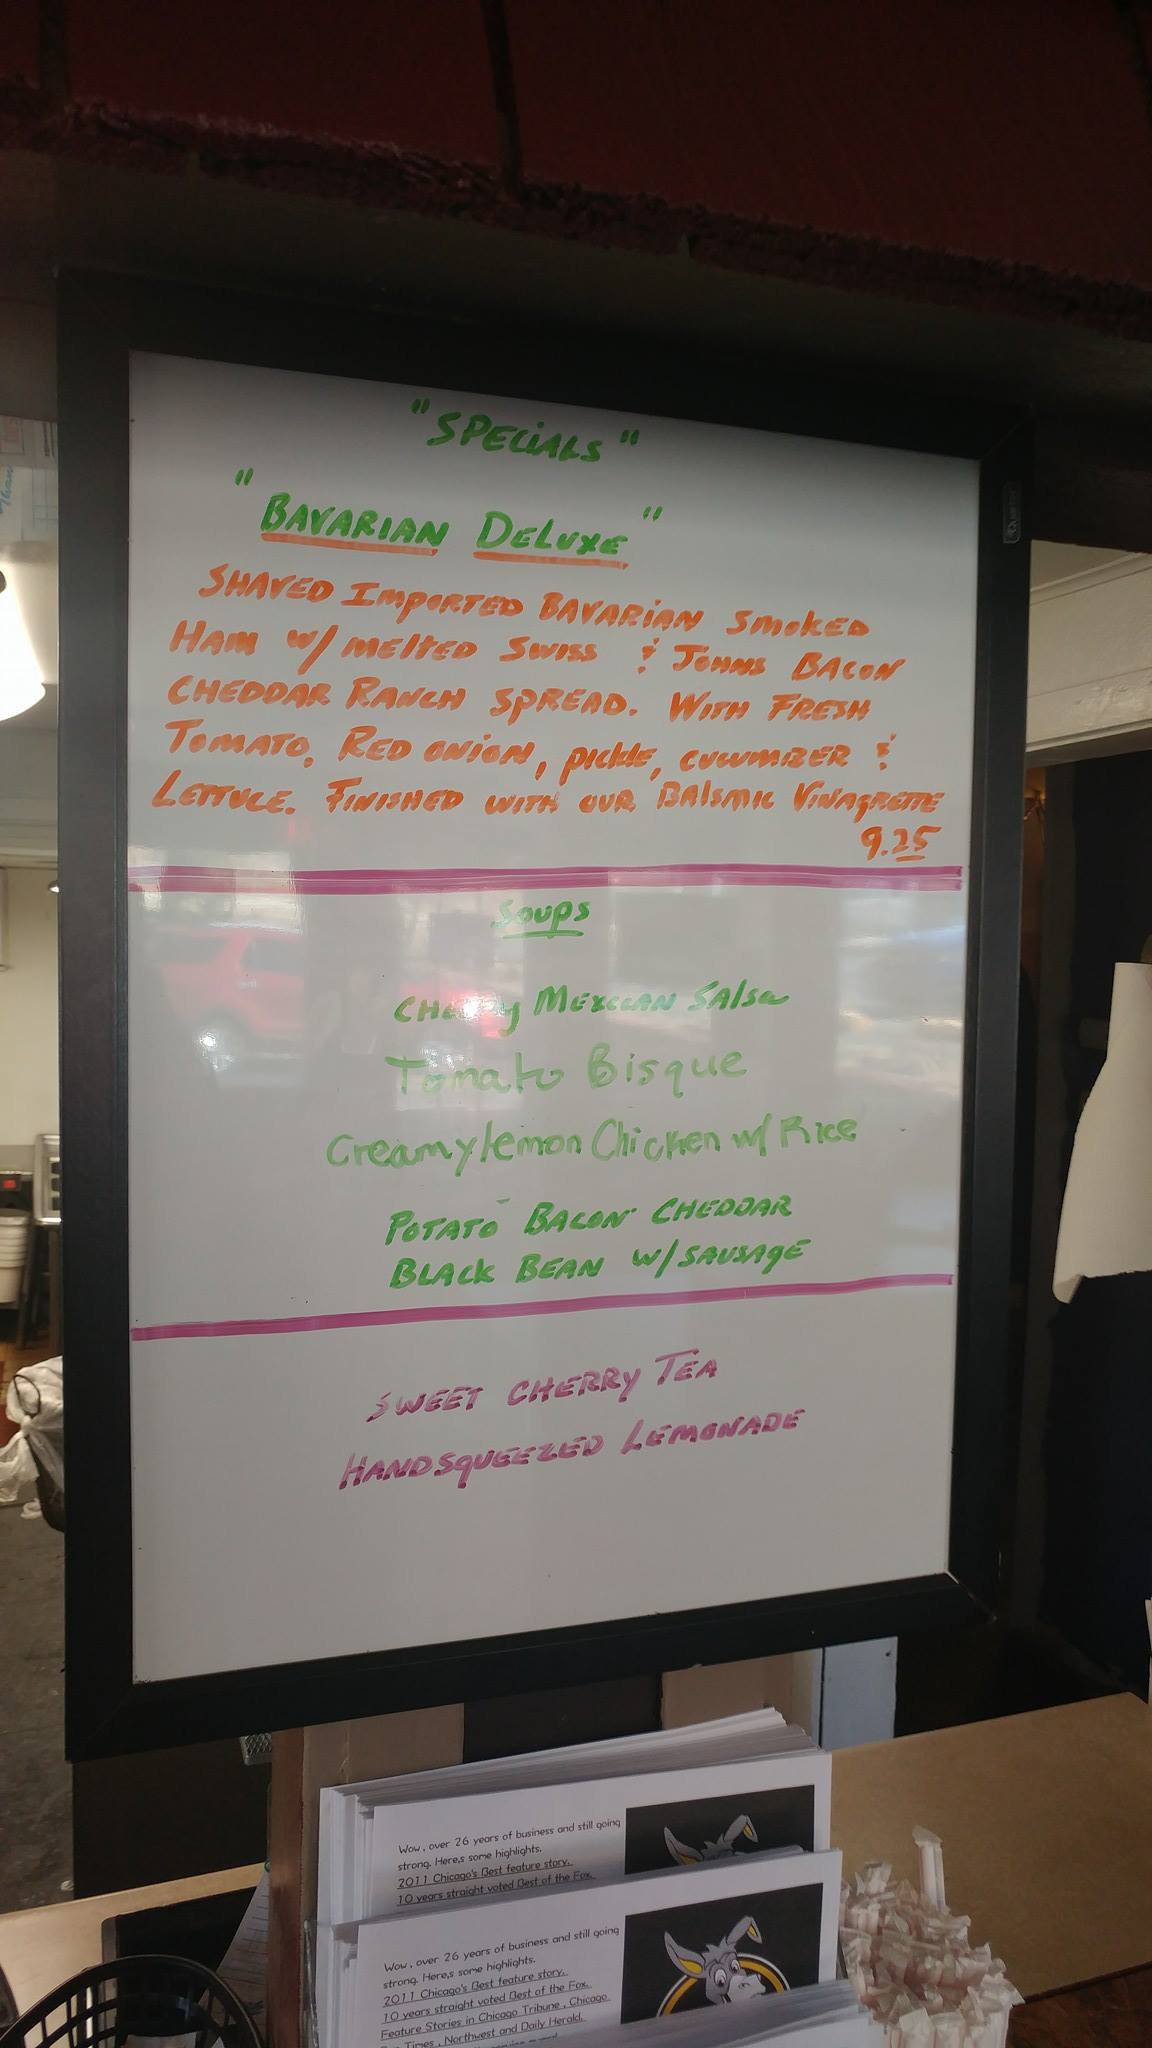 "SPECIALS"
"BAVARIAN DELUXE"
SHAVED IMPORTED BAVARIAN SMOKED
HAM W/ MELTED SWISS & JOHNS BACON
CHEDDAR RANCH SPREAD. WITH FRESH
TOMATO, RED ONION, PICKLE, CUCUMBER &
LETTUCE. FINISHED WITH OUR BALSMIC VINAGRETTE
9.25
Soups
MEXICAN SALSA
Tomato Bisque
Creamy lemon Chicken w/ Rice
POTATO BACON CHEDDAR
BLACK BEAN W/ SAUSAGE
SWEET CHERRY TEA
HANDSQUEEZED LEMONADE
Wow, over 26 years of business and still going
strong. Here,s some highlights.
2011 Chicago's Best feature story.
10 years straight voted Best of the Fox.
Wow, over 26 years of business and still going
strong. Here,s some highlights.
2011 Chicago's Best feature story.
10 years straight voted Best of the Fox.
Feature Stories in Chicago Tribune, Chicago
Times, Northwest and Daily Herald.